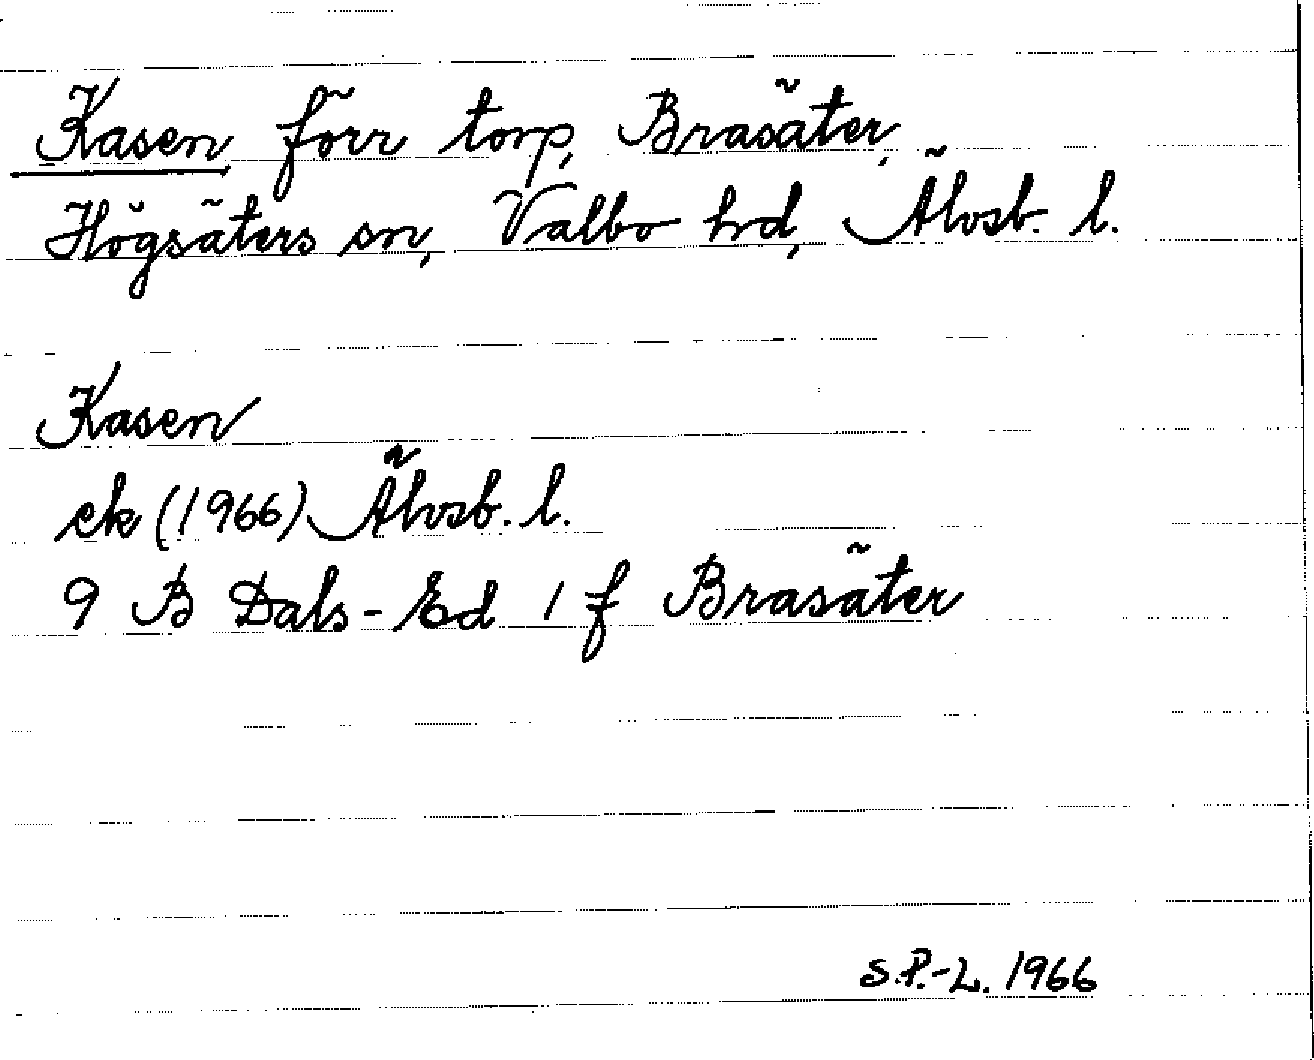 Kasen förr torp, Brasäter,
Högsäters sn, Valbo hd, Älvsb. l.
Kasen
ek (1966) Älvsb. l.
9 B Dals-Ed 1 f Brasäter
S.P.-L. 1966